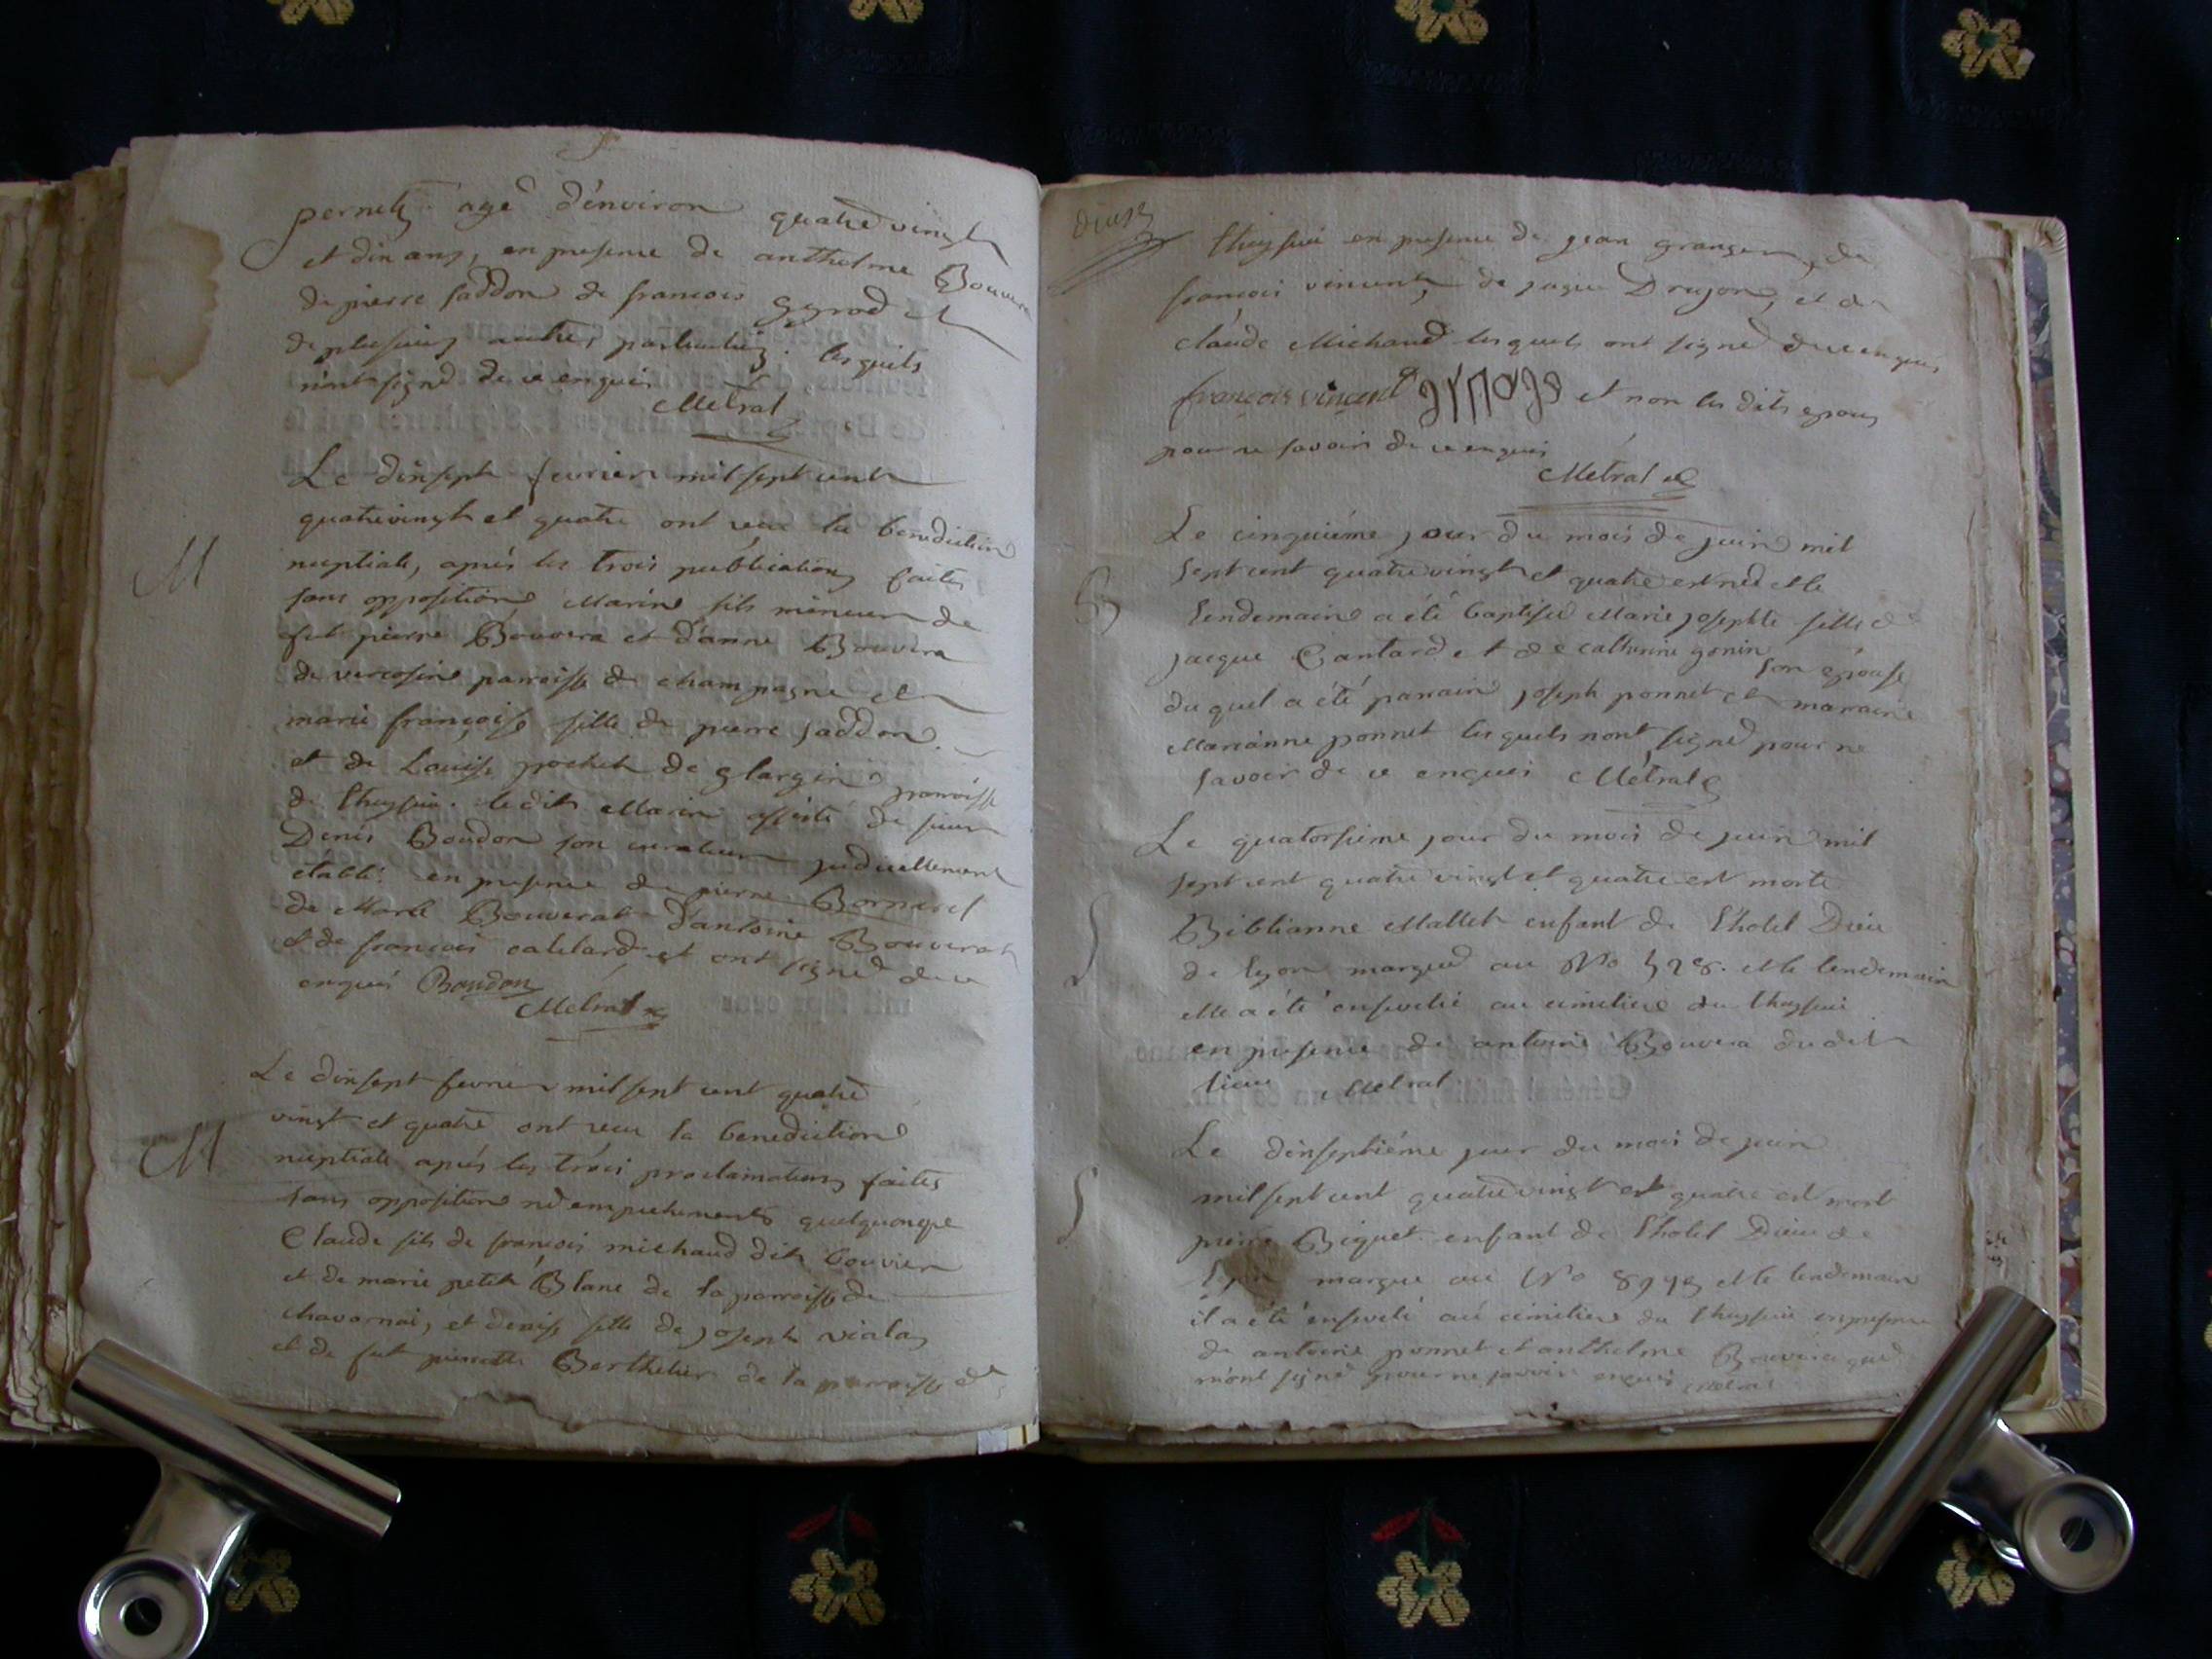 pernet agé d'environ quatre vingt
et dix ans, en presence de anthelme Bouvera
de pierre jaddon de francois gyrod et
de plusieurs autres particuliers. lesquels
n'ont signé de ce enquis
Métral
Le dixsept fevrier mil sept cent
quatrevingt et quatre ont reçu la benediction
M
nuptiale, aprés les trois publications faites
sans opposition Marin fils mineur de
fut pierre Bouvera et d'anne Bouvera
de vercosin parroisse de champagne et
marie françoise fille de pierre jaddon
et de Louise pochet de parroisse
de thuysui. le dit Marin assisté de sieur
Denis Boudon son curateur judiciellement
etabli. en presence de pierre
de Marc Bouverat d'antoine Bouverat
et de francois et ont signé de ce
enquis Boudon
Métral
Le dixsept fevrier mil sept cent quatre
vingt et quatre ont reçu la benediction
M
nuptiale aprés les trois proclamations faites
sans opposition ni empechements quelquonque
Claude fils de francois michaud dit bouvier
et de marie petit Blanc de la parroisse de
chavornai, et denise fille de joseph vialas
et de fut pierrette Berthelier de la parroisse de
thuysui en presence de jean granger, de
francois vincent, de jaque Drujon, et de
claude Michaud lesquels ont signé de ce enquis
françois vincent et non les dits epoux
pour ne savoir de ce enquis
Métral
Le cinquiéme jour du mois de juin mil
sept cent quatre vingt et quatre est née et le
B
lendemain a été baptisée Marie josephte fille de
jacque Cantard et de catherine gonin son épouse
du quel a été parrain joseph ponnet et marraine
Marianne ponnet lesquels nont signé pour ne
savoir de ce enquis Métral
Le quatorsieme jour du mois de juin mil
sept cent quatre vingt et quatre est morte
S
Biblianne Mallet enfant de l'hotel Dieu
de lyon marqué au No et le lendemain
elle a été ensevelie au cimetiere du thuysui
en presence de antoine Bouvera du dit
lieu Métral
Le dixseptiéme jour du mois de juin
mil sept cent quatre vingt et quatre est mort
S
pierre Biguet enfant de l'hotel Dieu de
marque au No et le lendemain
il a été enseveli au cimetiere du thuysui en presence
de antoine ponnet et anthelme Bouvera qui
n'ont signé pour ne savoir enquis Métral